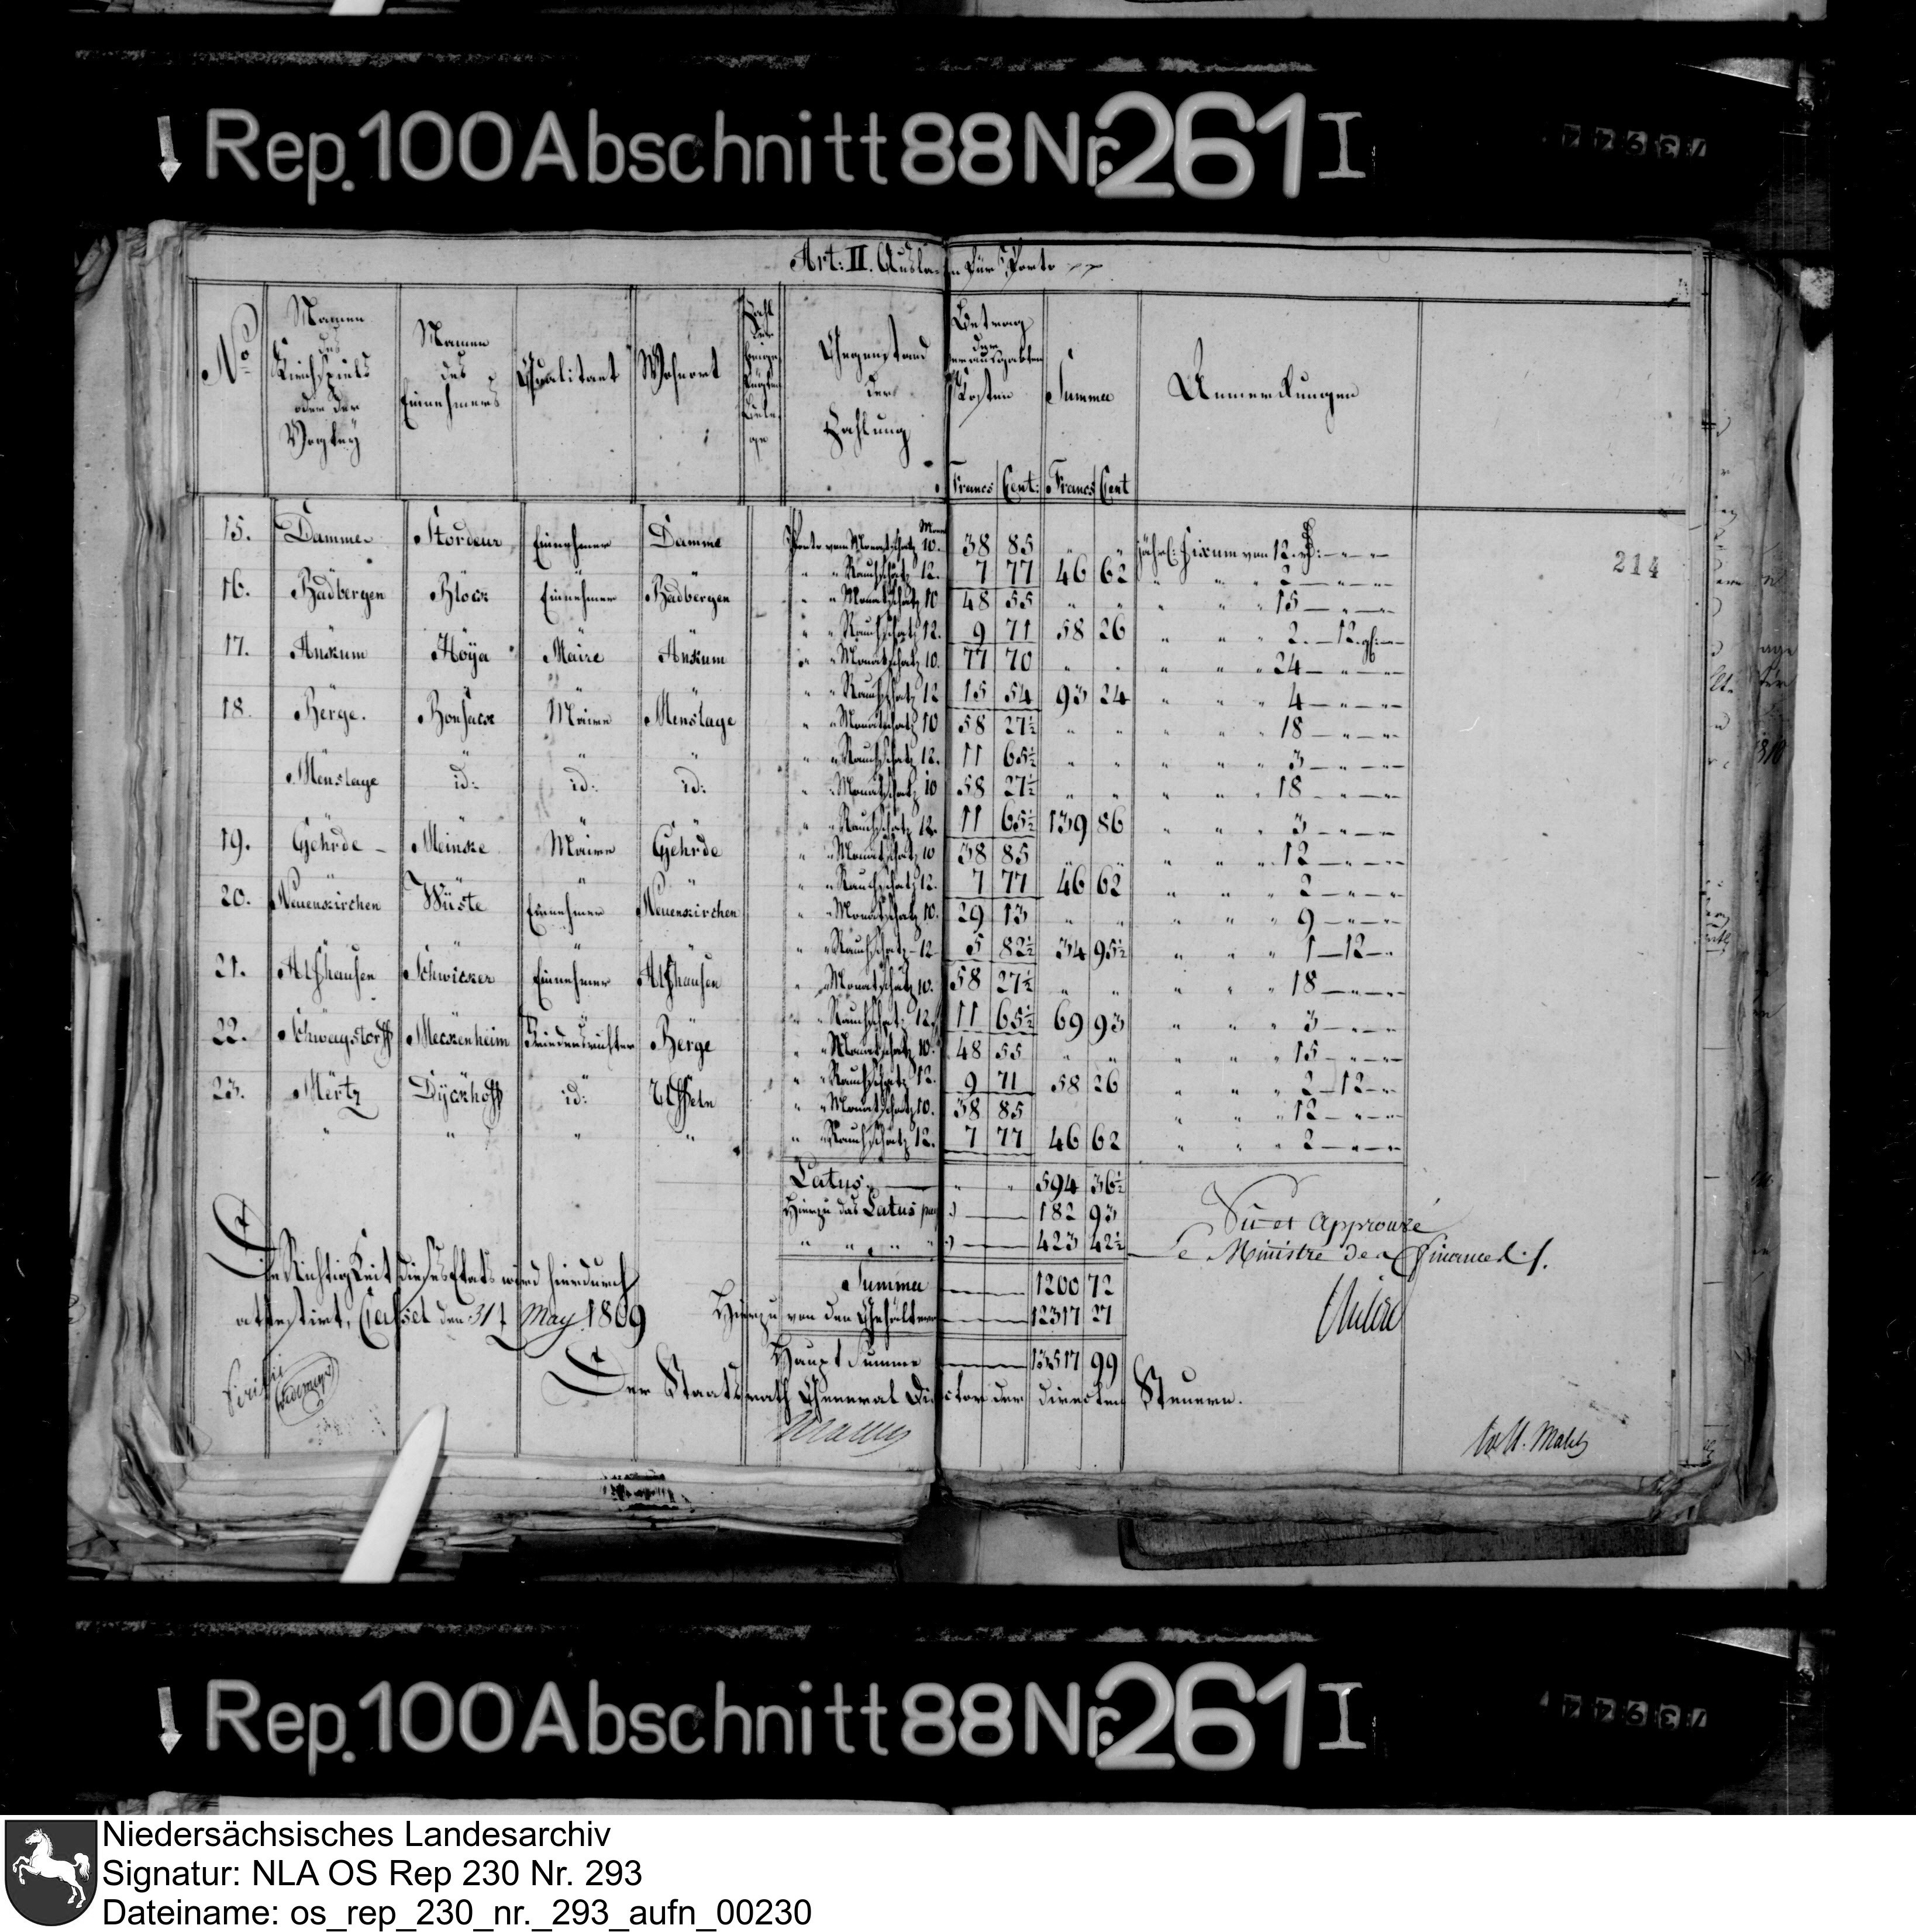 Rep. 100 Abschnitt 88 Nr. 261 I
Art: II. Auslagen für Porto
No
Namen des Kirchspiels oder der Vogtey
Namen des Einnehmers
Qualitaet
Wohnort
Gegenstand der Zahlung
Betrag der verausgabten Posten
Summa
Anmerkungen
Francs Cent: Francs Cent
214
15. Damme Stordeur Einnehmer Damme Porto vom Monatschatz 10. 38 85 " " jährl: Fixum von 12
" " Rauchschatz 12. 7 77 46 62 " " 2 — " —
16. Badbergen Block Einnehmer Badbergen " " Monatschatz 10 48 55 " " " " " 15 — " —
" " Rauchschatz 12. 9 71 58 26 " " " 2. — 12 gf: —
17. Ankum Höya Maire Ankum " " Monatschatz 10. 77 70 " " " " " 24 — " —
" " Rauchschatz 12 15 54 93 24 " " " 4 — " —
18. Berge. Bonsack Maire Menslage " " Monatschatz 10 58 27½ " " " " " 18 — " —
" " Rauchschatz 12. 11 65½ " " " " " 3 — " —
Menslage id: id: id: " " Monatschatz 10 58 27½ " " " " " 18 — " —
" " Rauchschatz 12. 11 65½ 139 86 " " " 3 — " —
19. Gehrde Meinke Maire Gehrde " " Monatschatz 10 38 85 " " " 12 — " —
" " Rauchschatz 12. 7 77 46 62 " " " 2 — " —
20. Neuenkirchen Wüste Einnehmer Neuenkirchen " " Monatschatz 10. 29 13 " " " " " 9 — " —
" " Rauchschatz 12 5 82½ 34 95½ " " " 1 — 12 — "
21. Alfhausen Schwicker Einnehmer Alfhausen " " Monatschatz 10. 58 27½ " " " " " 18 — " —
" " Rauchschatz 12 11 65½ 69 93 " " " 3 — " —
22. Schwagstorff Meckenheim Friedensrichter Berge " " Monatschatz 10. 48 55 " " " " " 15 — " —
" " Rauchschatz 12. 9 71 58 26 " " " 2 — 12 — "
23. Mertz Dÿckhoff id: Uffeln " " Monatschatz 10. 38 85 " " " 12 — " —
" " " " " " Rauchschatz 12. 7 77 46 62 " " " 2 — " —
Latus. " " 594 36½
Hierzu das Latus pag :) 182 93
" " " " " :) 423 42½
Summa 1200 72
Hierzu von den Gehältern 12317 27
Haupt Summe 13517 99
Die Richtigkeit dieses Etats wird hierdurch
attestirt, Cassel den 31t May 1809
Der Staatsrath General Director der directen Steuern.
Vu et Approuvé
Le Ministre des Finances
Rep. 100 Abschnitt 88 Nr. 261 I
Niedersächsisches Landesarchiv
Signatur: NLA OS Rep 230 Nr. 293
Dateiname: os_rep_230_nr._293_aufn_00230